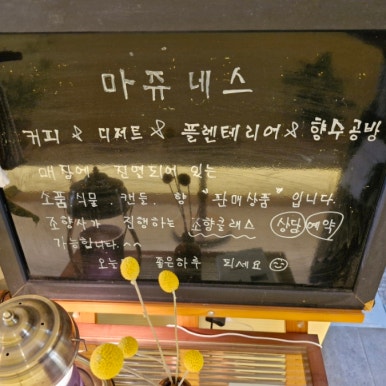 마쥬네스
커피 & 디저트 & 플렌테리어 & 향수공방
매장에 진열되어 있는
소품, 식물, 캔들, 향 "판매상품" 입니다.
조향사가 진행하는 조향클래스 상담 예약
가능합니다.^^
오늘 좋은하루 되세요